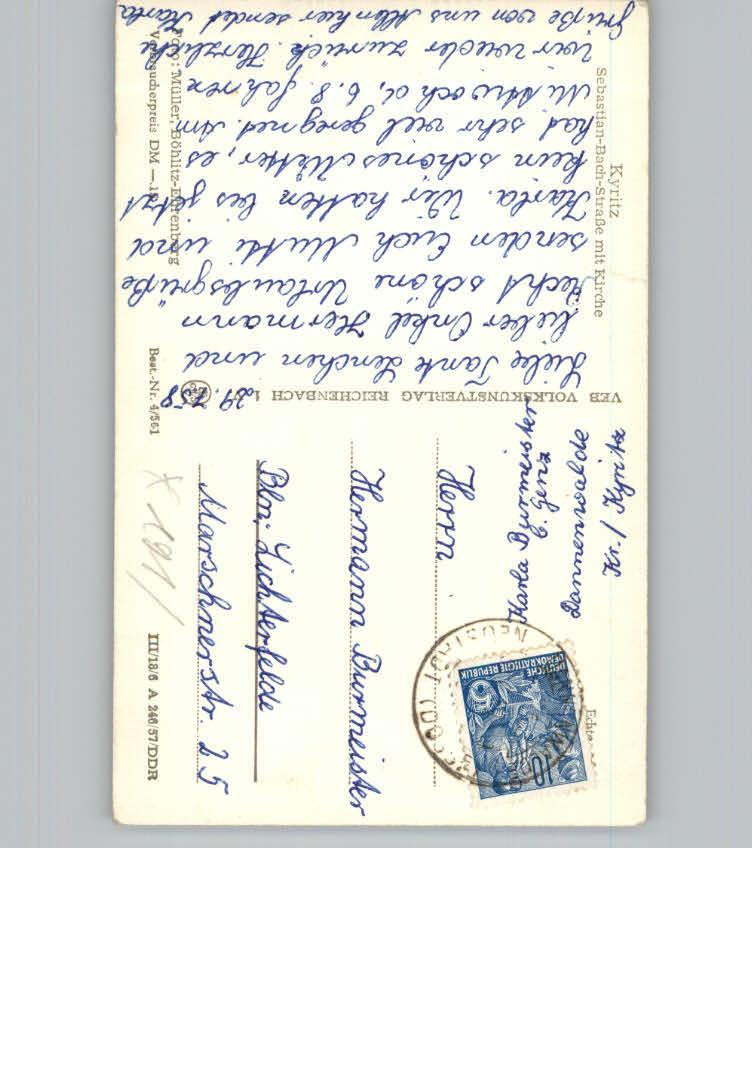 Kyritz
Sebastian-Bach-Straße mit Kirche
29. 7. 58
Liebe Tante Lenchen und
lieber Onkel Hermann
Recht schöne Urlaubsgrüße
senden Euch Mutti und
Karla. Wir hatten bis jetzt
kein schönes Wetter, es
hat sehr viel geregnet. Am
Mittwoch d, 6. 8. fahren
wir wieder zurück. Herzliche
Grüße von uns Allen hier sendet Karla
Foto: Müller, Böhlitz-Ehrenberg
Verbraucherpreis DM —.18
Best.-Nr. 4/561
VEB VOLKSKUNSTVERLAG REICHENBACH i. V.
Karla Burmeister
b. Genz
Dannenwalde
Kr. / Kyritz
Echte
DEUTSCHE
DEMOKRATISCHE REPUBLIK
10
NEUSTADT (DOSSE)
Herrn
Hermann Burmeister
Bln. Lichterfelde
Marschnerstr. 25
X 191/
III/18/6 A 246/57/DDR